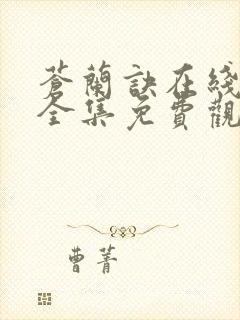 蒼蘭訣在綫
全集免費觀
曹菁